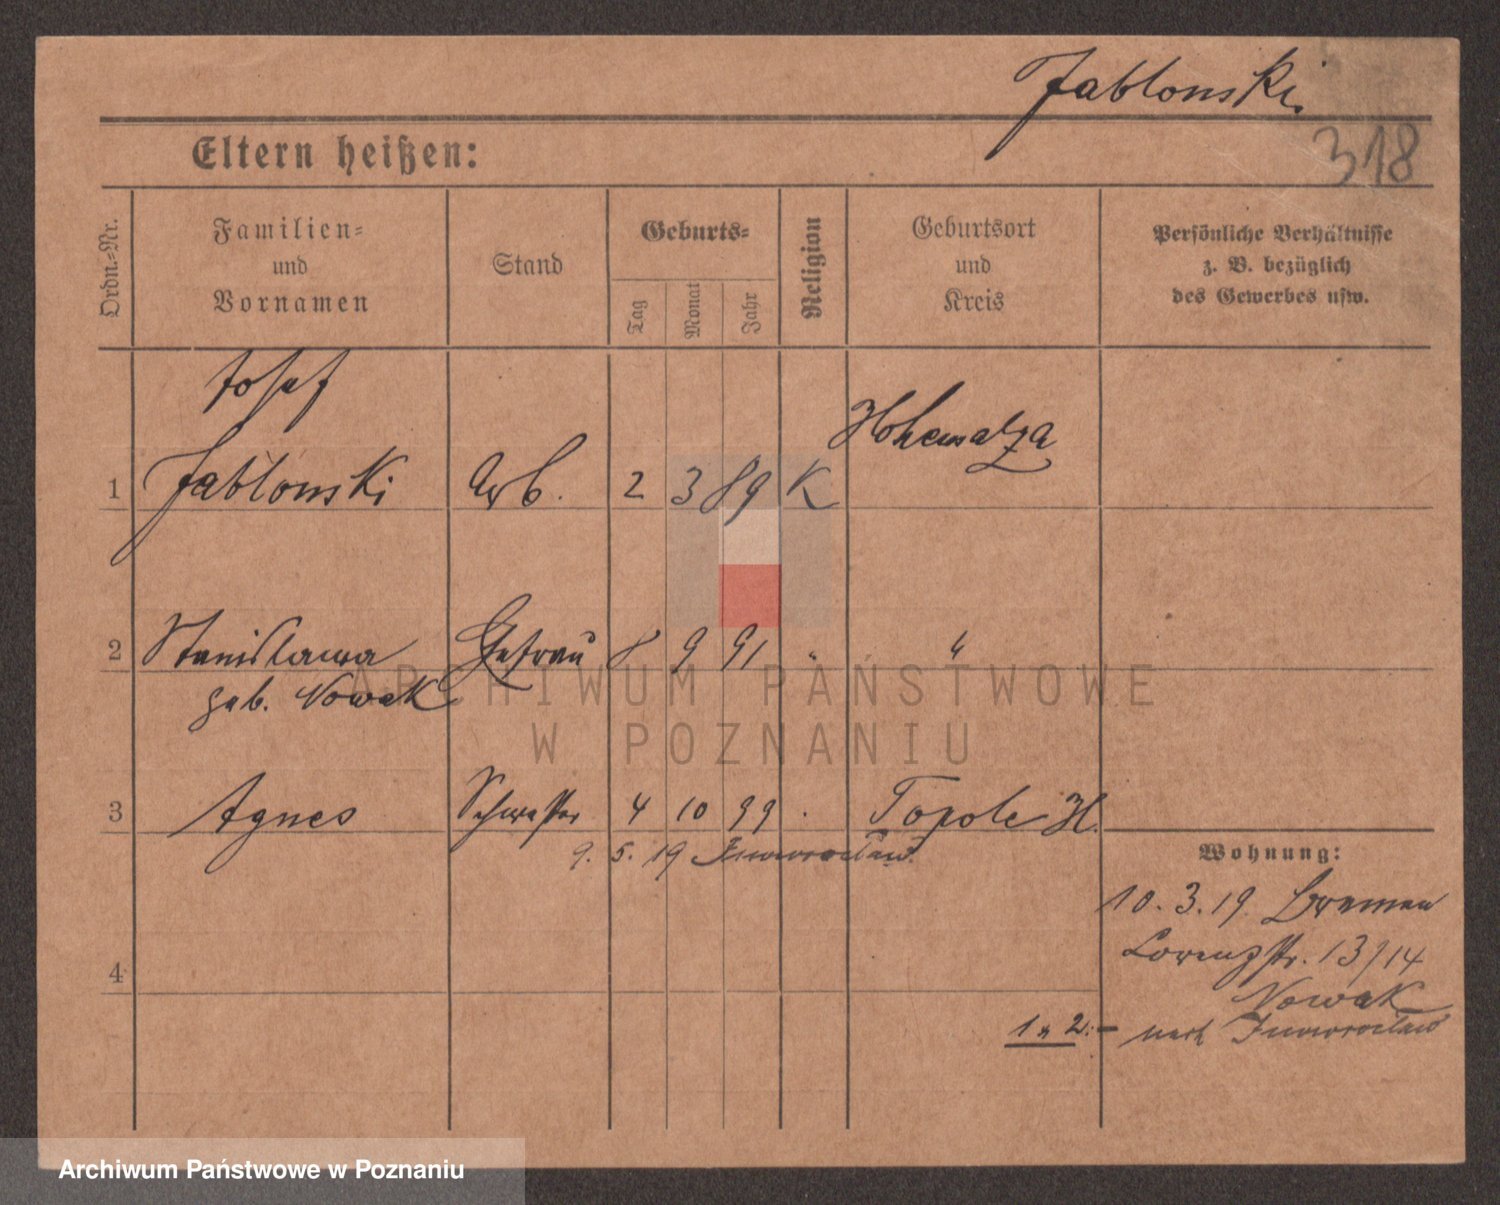 Jablonski
318
Eltern heißen:
Ordn.-Nr.
Familien-
und
Vornamen
Stand
Geburts-
Tag
Monat
Jahr
Religion
Geburtsort
und
Kreis
Persönliche Verhältnisse
z. B. bezüglich
des Gewerbes usw.
Josef
1 Jablonski Arb. 2 3 89 K Hohensalza
2 Stanislawa Ehefrau 8 9 91 " "
geb. Nowak
3 Agnes Schwester 4 10 99 . Topole H.
9. 5. 19 Inowroclaw.
Wohnung:
10. 3. 19 Bremen
Lorenzstr. 13/14
4
Nowak
1 u 2: – nach Inowroclaw
ARCHIWUM PAŃSTWOWE
W POZNANIU
Archiwum Państwowe w Poznaniu